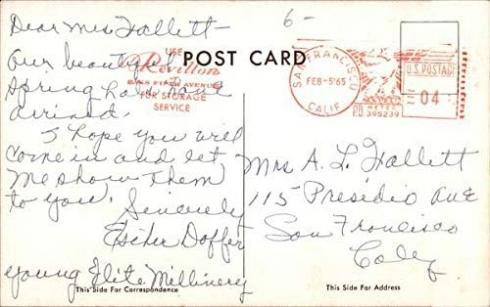 Dear Mrs Hallett-
Our beautiful
Spring hats have
arrived.
I hope you will
come in and let
me show them
to you.
Sincerely
Esther Doffer
Young Elite Millinery
This Side For Correspondence
6-
POST CARD
USE
Revillon
FIRST AVENUE
FUR STORAGE
SERVICE
SAN FRANCISCO
FEB-5'65
CALIF.
U.S. POSTAGE
04
P.B. METER
398239
Mrs A. L. Hallett
115 Presidio ave
San Francisco
Calif
This Side For Address